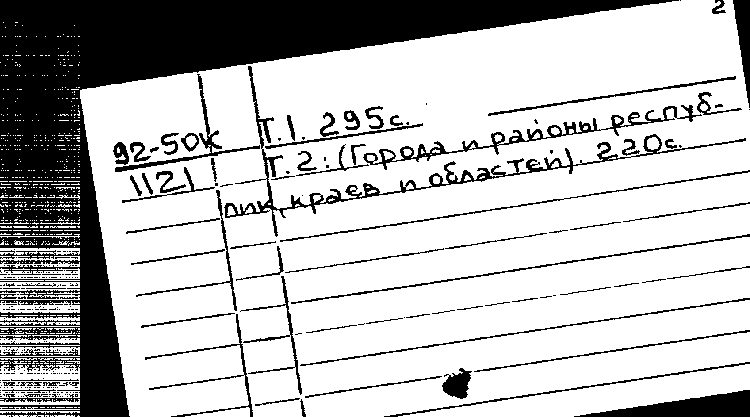 2
92-50К Т.1. 295с.
1121 Т.2: (Города и районы респуб-
лик, краев и областей). 220с.